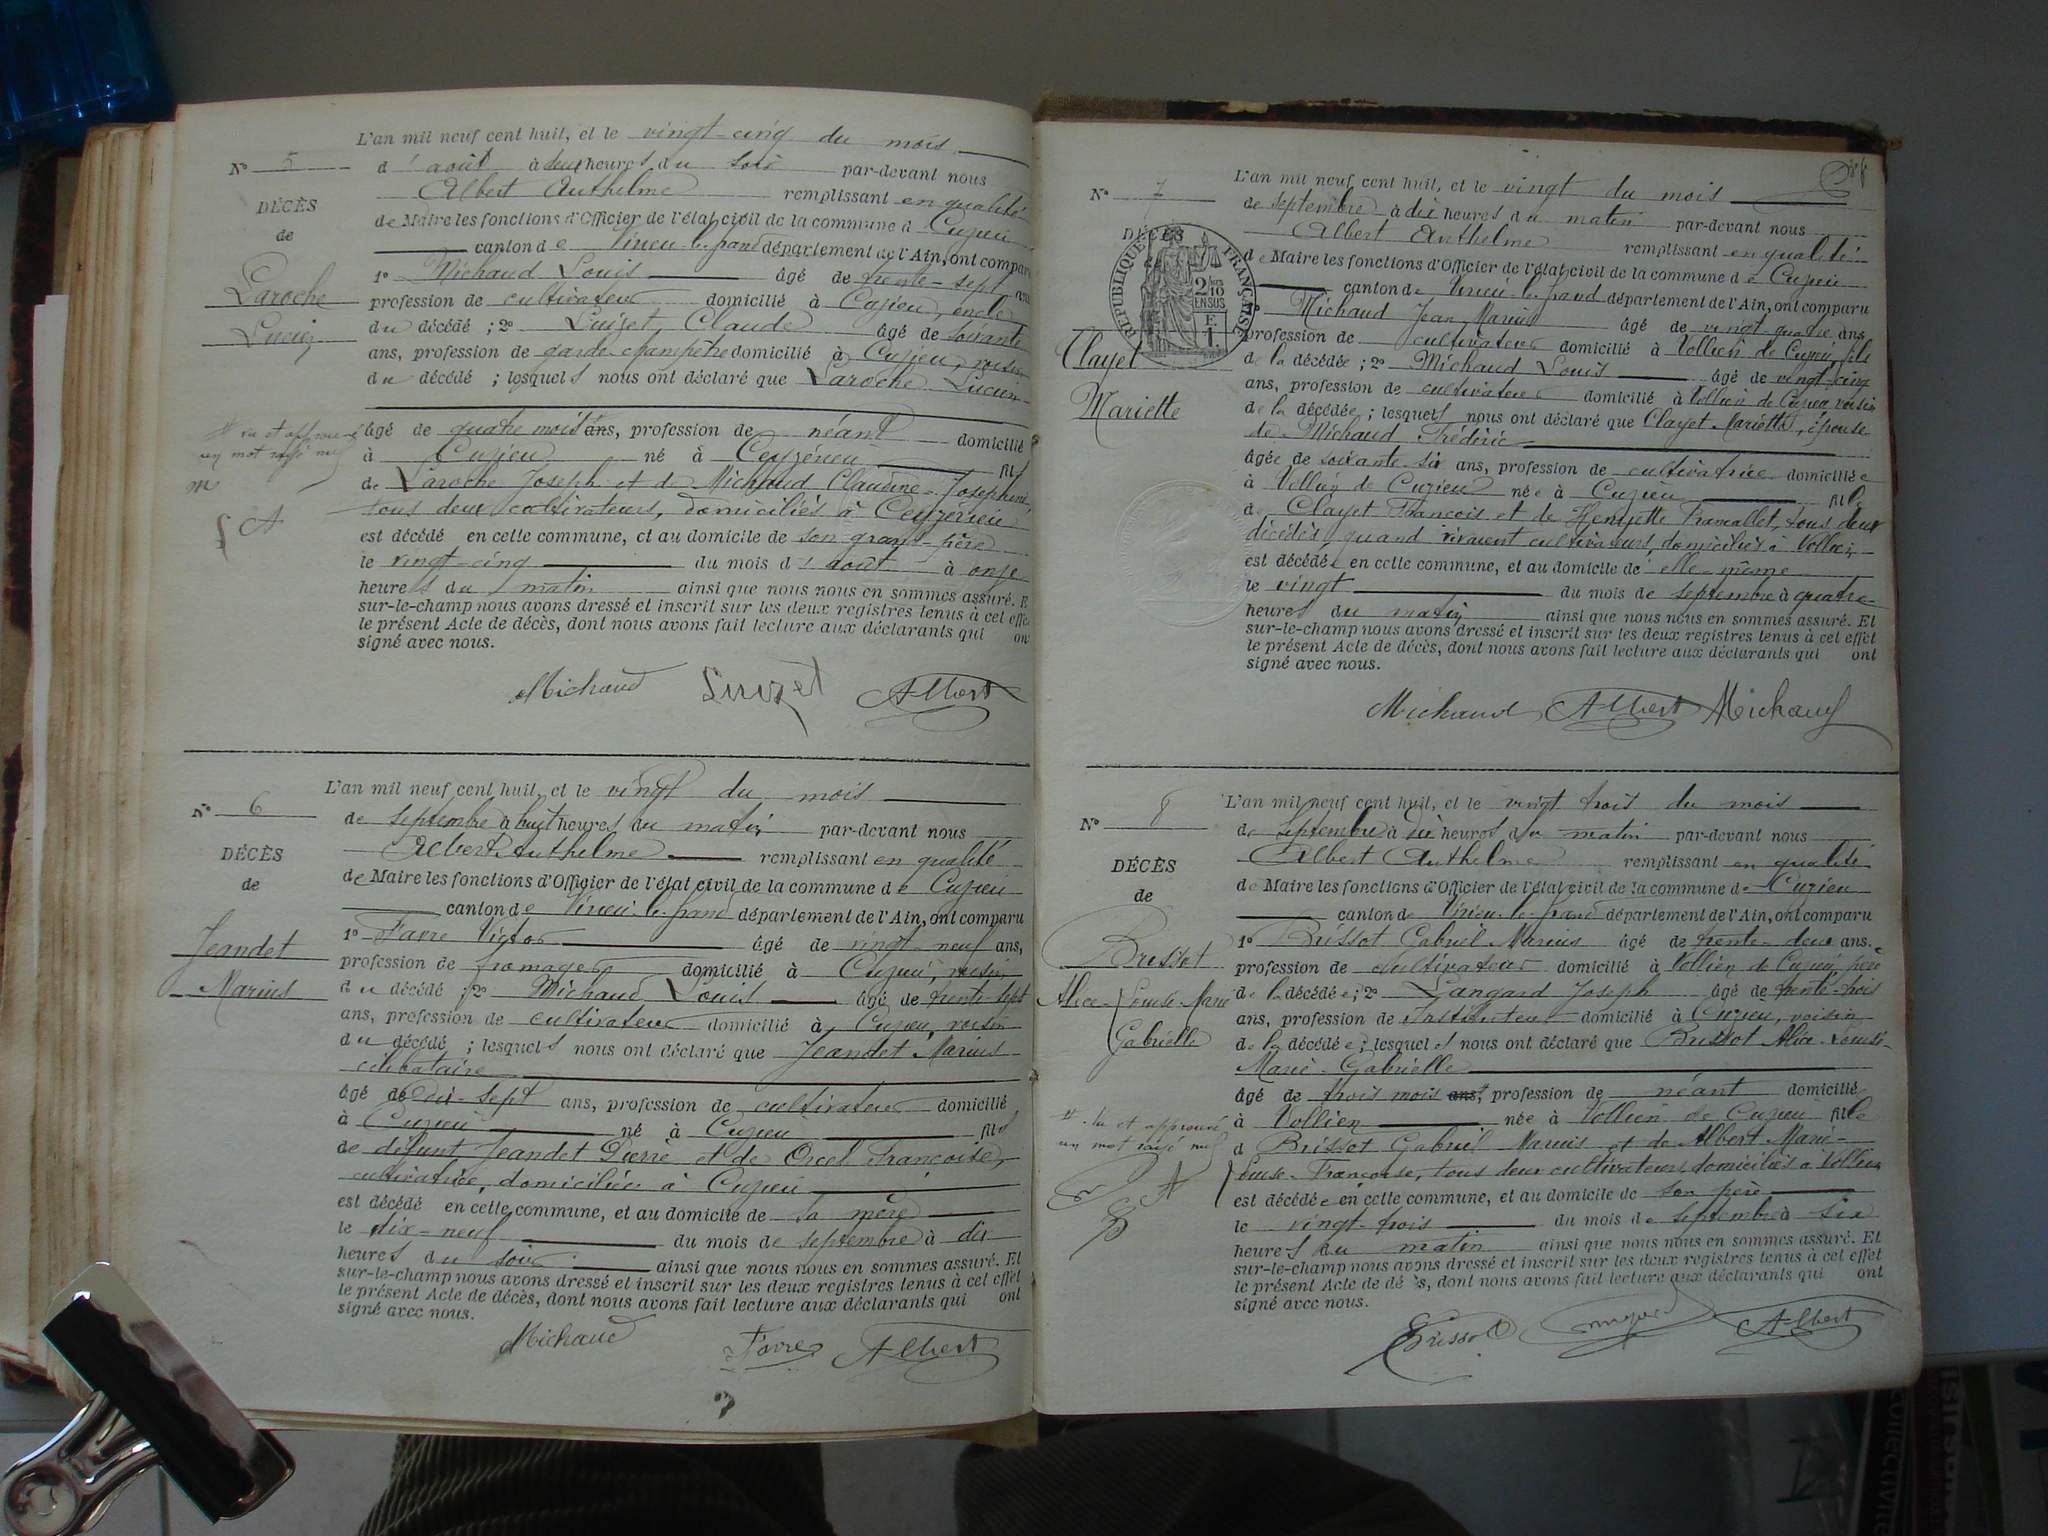 L'an mil neuf cent huit, et le vingt-cinq du mois
N° 5
d'août à deux heures du soir par-devant nous
Albert Anthelme remplissant en qualité
DÉCÈS
de Maire les fonctions d'Officier de l'état civil de la commune d Cuzieu
de
canton de Virieu-le-grand département de l'Ain, ont comparu
1° Michaud Louis âgé de trente-sept ans
Laroche
profession de cultivateur domicilié à Cuzieu, oncle
Lucien
du décédé ; 2° Luizet Claude âgé de soixante
ans, profession de garde-champêtre domicilié à Cuzieu, voisin
du décédé ; lesquels nous ont déclaré que Laroche Lucien
# vu et approuvé
un mot rayé nul
âgé de quatre mois ans, profession de néant domicilié
à Cuzieu né à Ceyzérieu fils
m
de Laroche Joseph et de Michaud Claudine-Joséphine,
tous deux cultivateurs, domiciliés à Ceyzérieu
A
est décédé en cette commune, et au domicile de son grand-père
le vingt-cinq du mois d'août à onze
heures du matin ainsi que nous nous en sommes assuré. E
sur-le-champ nous avons dressé et inscrit sur les deux registres tenus à cet effe
le présent Acte de décès, dont nous avons fait lecture aux déclarants qui on
signé avec nous.
Michaud Luizet Albert
L'an mil neuf cent huit, et le vingt du mois
N° 6
de septembre à huit heures du matin par-devant nous
Albert Anthelme remplissant en qualité
DÉCÈS
de Maire les fonctions d'Officier de l'état civil de la commune de Cuzieu
de
canton de Virieu-le-grand département de l'Ain, ont comparu
1° Favre Victor âgé de vingt-neuf ans,
Jeandet
profession de fromager domicilié à Cuzieu, voisin
Marius
du décédé ; 2° Michaud Louis âgé de trente-sept
ans, profession de cultivateur domicilié à Cuzieu, voisin
du décédé ; lesquels nous ont déclaré que Jeandet Marius
célibataire
âgé de dix-sept ans, profession de cultivateur domicilié
à Cuzieu né à Cuzieu fils
de défunt Jeandet Pierre et de Orcel Françoise,
cultivatrice, domiciliée à Cuzieu
est décédé en cette commune, et au domicile de sa mère
le dix-neuf du mois de septembre à dix
heures du soir ainsi que nous nous en sommes assuré. Et
sur-le-champ nous avons dressé et inscrit sur les deux registres tenus à cet effet
le présent Acte de décès, dont nous avons fait lecture aux déclarants qui ont
signé avec nous.
Michaud Favre Albert
L'an mil neuf cent huit, et le vingt du mois
N° 7
de septembre à dix heures du matin par-devant nous
DÉCÈS
Albert Anthelme remplissant en qualité
de Maire les fonctions d'Officier de l'état civil de la commune de Cuzieu
RÉPUBLIQUE FRANÇAISE
2/10
EN SUS
F.
1.
canton de Virieu-le-grand département de l'Ain, ont comparu
Michaud Jean Marius âgé de vingt-quatre ans
profession de cultivateur domicilié à Vollien de Cuzieu, fils
Clayet
Mariette
de la décédée ; 2° Michaud Louis âgé de vingt-cinq
ans, profession de cultivateur domicilié à Vollien de Cuzieu voisin
de la décédée ; lesquels nous ont déclaré que Clayet Mariette, épouse
de Michaud Frédéric
âgée de soixante-six ans, profession de cultivatrice domiciliée
à Vollien de Cuzieu née à Cuzieu fille
de Clayet François et de Henriette Framallet, tous deux
décédés quand vivaient cultivateurs, domiciliés à Vollien
est décédée en cette commune, et au domicile de elle-même
le vingt du mois de septembre à quatre
heures du matin ainsi que nous nous en sommes assuré. Et
sur-le-champ nous avons dressé et inscrit sur les deux registres tenus à cet effet
le présent Acte de décès, dont nous avons fait lecture aux déclarants qui ont
signé avec nous.
Michaud Albert Michaud
L'an mil neuf cent huit, et le vingt trois du mois
N° 8
de Septembre à dix heures du matin par-devant nous
Albert Anthelme remplissant en qualité
DÉCÈS
de Maire les fonctions d'Officier de l'état civil de la commune de Cuzieu
de
canton de Virieu-le-grand département de l'Ain, ont comparu
1° Brissot Gabriel Marius âgé de trente-deux ans.
Brissot
profession de cultivateur domicilié à Vollien de Cuzieu, père
Alice-Louise-Marie
Gabrielle
de la décédée ; 2° Langard Joseph âgé de trente-trois
ans, profession de Instituteur domicilié à Cuzieu, voisin
de la décédée ; lesquels nous ont déclaré que Brissot Alice-Louise-
Marie-Gabrielle
âgé de trois mois ans, profession de néant domicilié
# vu et approuvé
un mot rayé nul
à Vollien née à Vollien de Cuzieu fille
d Brissot Gabriel Marius et de Albert Marie-
Louise-Françoise, tous deux cultivateurs domiciliés à Vollien
A
est décédée en cette commune, et au domicile de son père
le vingt-trois du mois de septembre à six
heures du matin ainsi que nous nous en sommes assuré. Et
sur-le-champ nous avons dressé et inscrit sur les deux registres tenus à cet effet
le présent Acte de décès, dont nous avons fait lecture aux déclarants qui ont
signé avec nous.
Brissot Albert